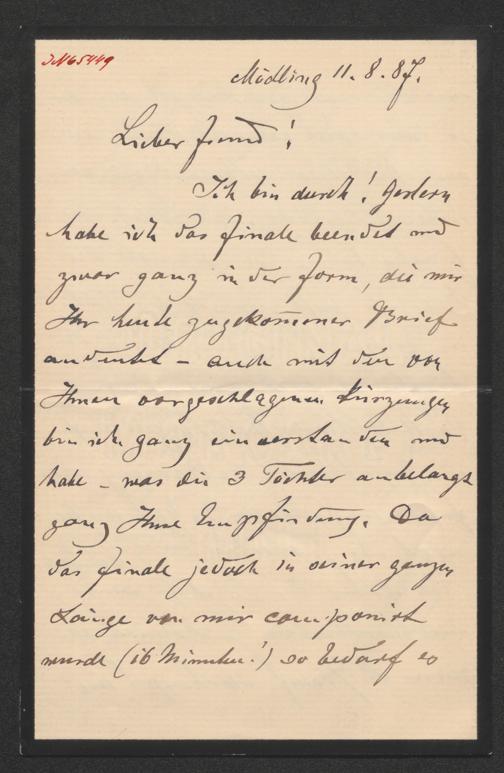 JN65449
Mödling 11. 8. 87.
Lieber Freund!
Ich bin durch! Gestern
habe ich das Finale beendet und
zwar ganz in der Form, die mir
Ihr heute zugekom̅ener Brief
andeutet – auch mit den von
Ihnen vorgeschlagenen Kürzungen
bin ich ganz einverstanden und
habe – was die 3 Töchter anbelangt
ganz Ihre Empfindung. Da
das Finale jedoch in seiner ganzen
Länge von mir componirt
wurde (16 Minuten!) so bedarf es